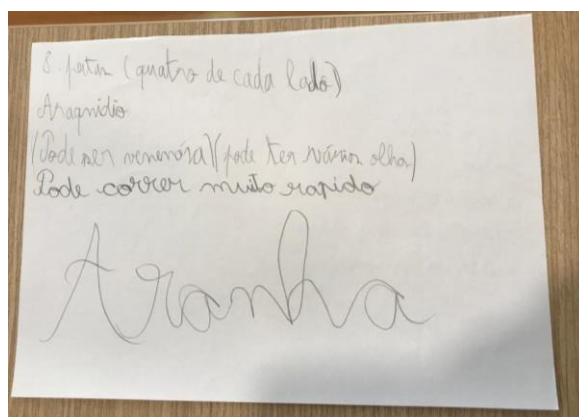 8 patas (quatro de cada lado)
Araqnidio
(Pode ser venenosa) (pode ter vários olhos)
Pode correr muito rapido
Aranha